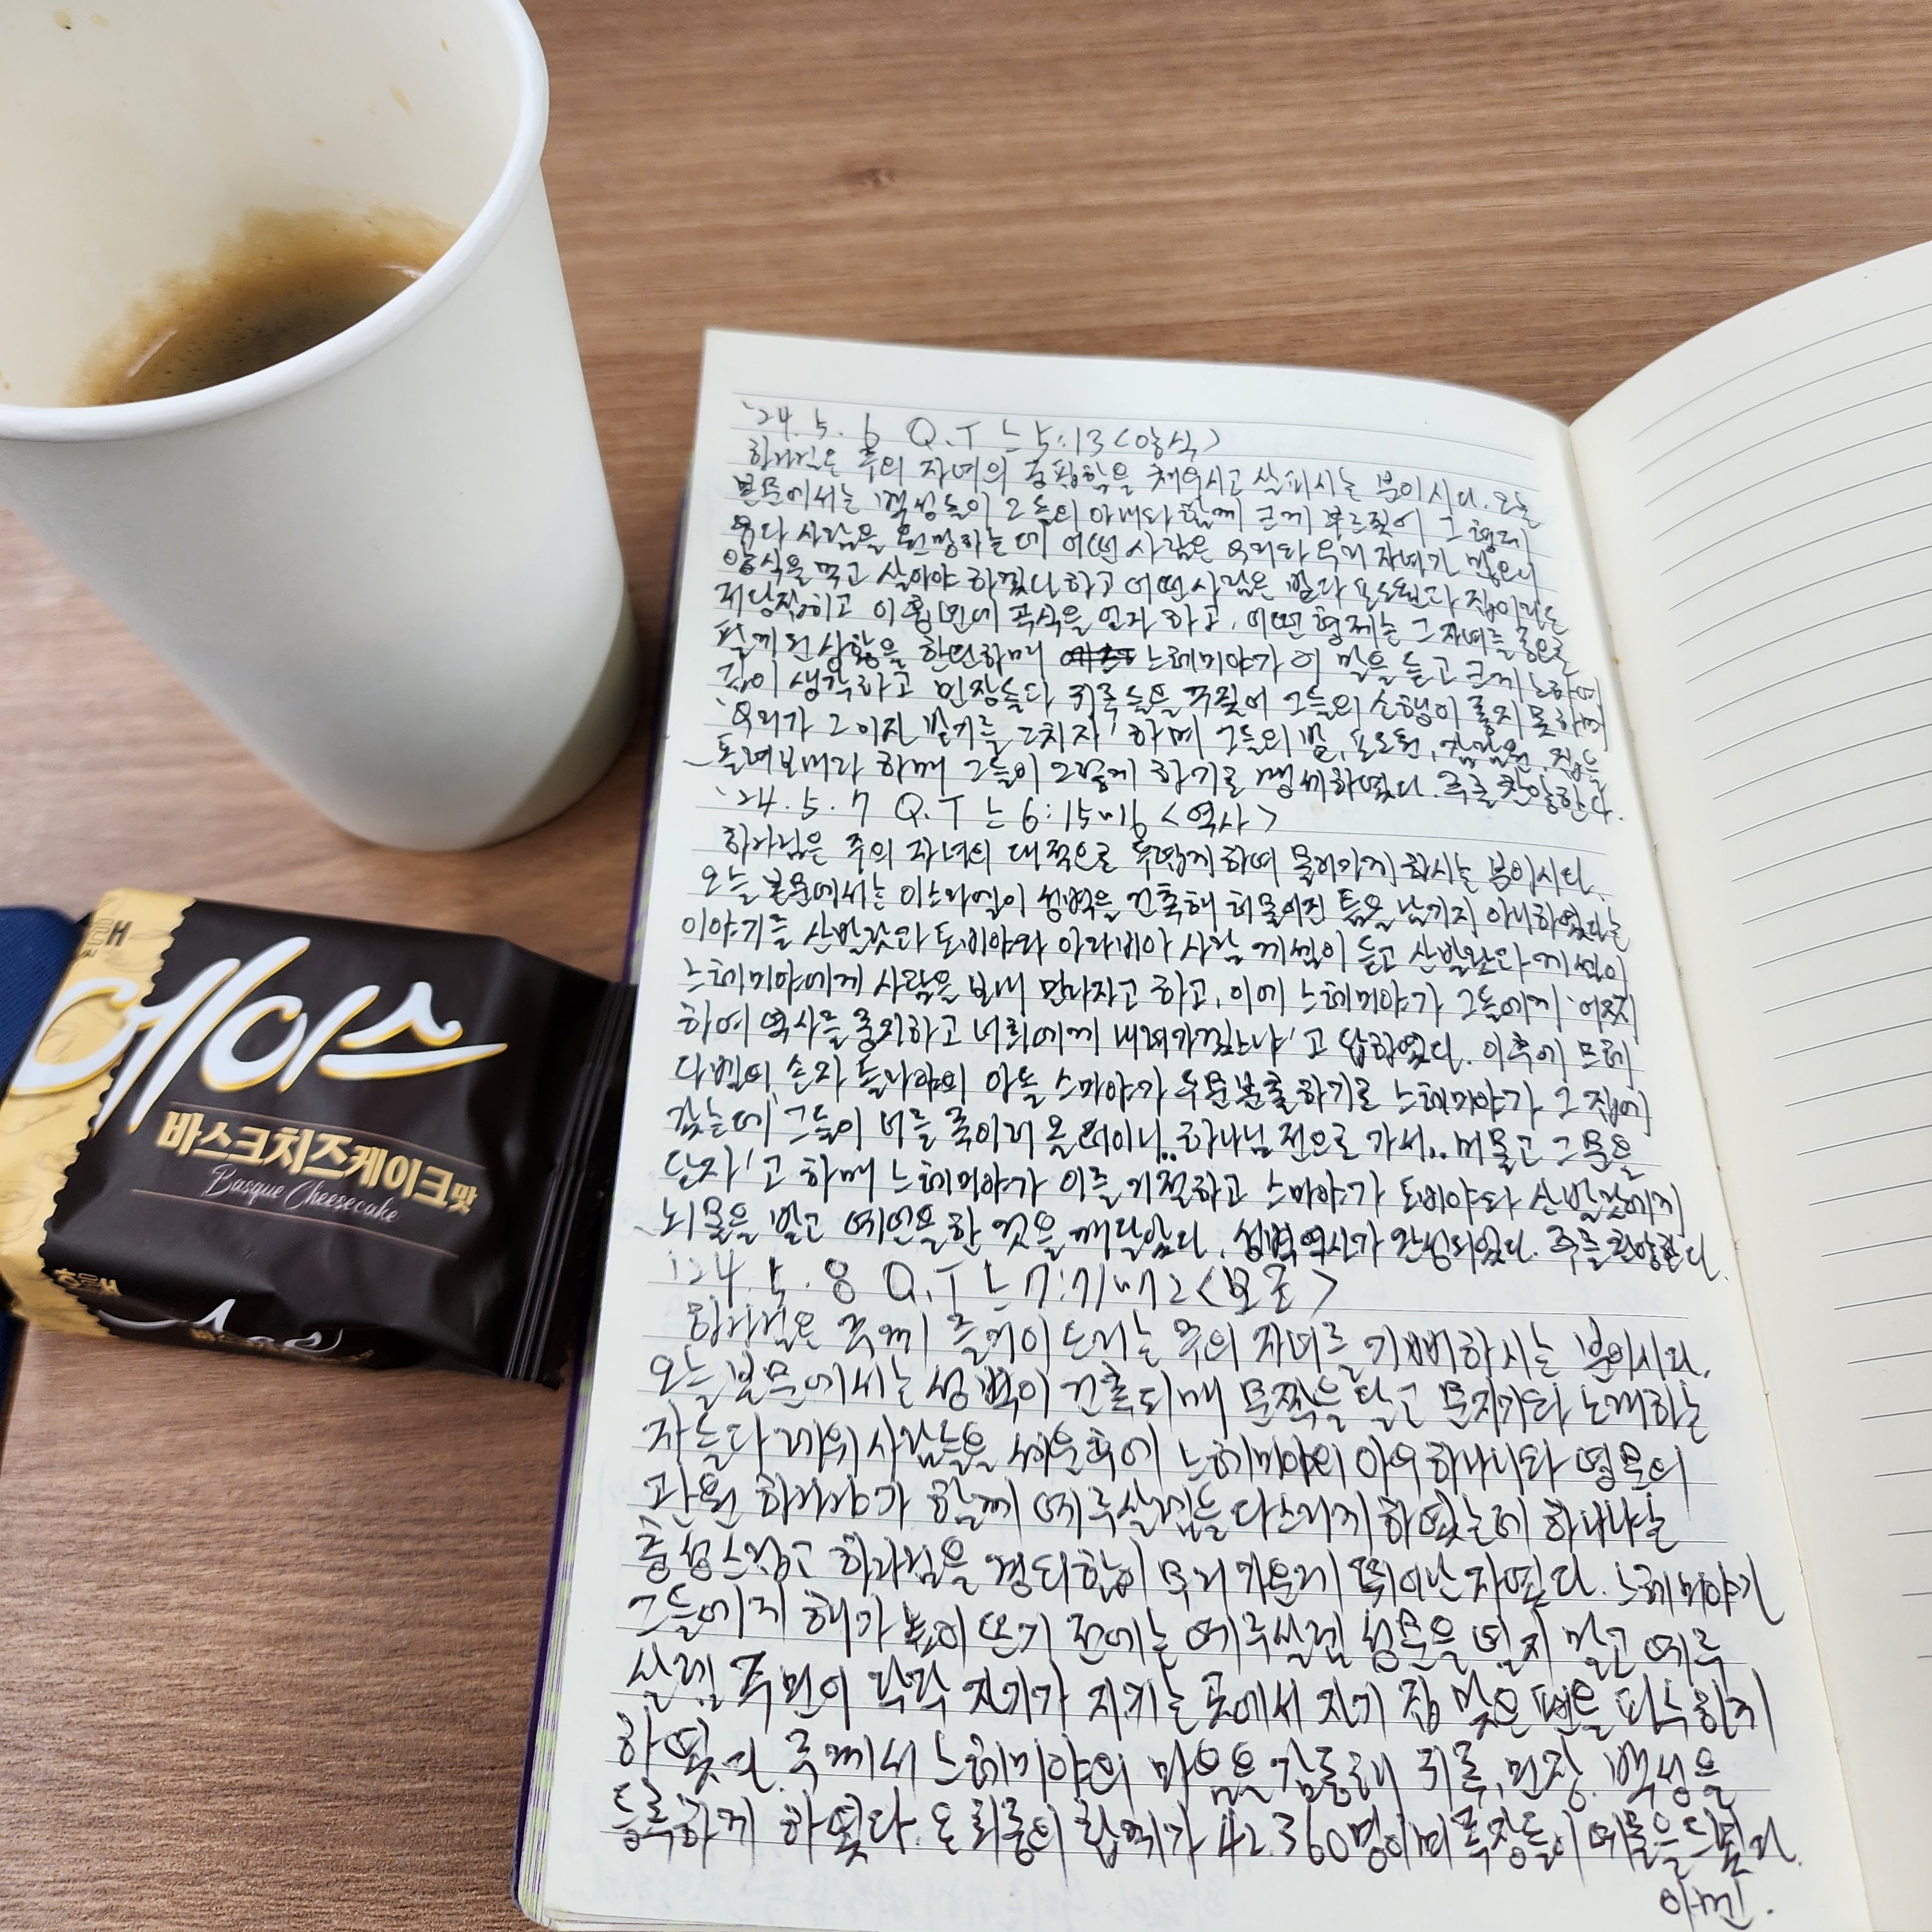 '24.5.6 Q.T 느5:13<양식>
하나님은 주의 자녀의 궁핍함을 채우시고 살피시는 분이시다. 오늘
본문에서는 백성들이 그들의 아내와 함께 크게 부르짖어 그 형제
유다 사람을 원망하는데 어떤 사람은 우리와 우리 자녀가 많으니
양식을 먹고 살아야 하겠다 하고 어떤 사람은 밭과 포도원과 집이라도
저당잡히고 이 흉년에 곡식을 얻자 하고, 어떤 형제는 그 자녀를 종으로
팔게된 상황을 한탄하매 느헤미야가 이 말을 듣고 크게 노하여
깊이 생각하고 민장들과 귀족들을 꾸짖어 그들의 소행이 좋지 못하매
'우리가 그 이자 받기를 그치자' 하며 그들의 밭, 포도원, 감람원, 집을
돌려보내라 하매 그들이 그렇게 하기로 맹세하였다. 주를 찬양한다.
'24.5.7 Q.T 느6:15~16 <역사>
하나님은 주의 자녀의 대적으로 두렵게 하며 물러가게 하시는 분이시다.
오늘 본문에서는 이스라엘이 성벽을 건축해 허물어진 틈을 남기지 아니하였다는
이야기를 산발랏과 도비야와 아라비아 사람 게셈이 듣고 산발랏과 게셈이
느헤미야에게 사람을 보내 만나자고 하고, 이에 느헤미야가 그들에게 '어찌
하여 역사를 중지하고 너희에게 내려가겠느냐'고 답하였다. 이후에 므헤
다벨의 손자 들라야의 아들 스마야가 두문불출하기로 느헤미야가 그 집에
갔는데 '그들이 너를 죽이러 올 터이니.. 하나님 전으로 가서.. 머물고 그 문을
닫자'고 하매 느헤미야가 이를 거절하고 스마야가 도비야와 산발랏에게
뇌물을 받고 예언을 한 것을 깨달았다. 성벽 역사가 완성되었다. 주를 찬양한다.
'24.5.8 Q.T 느7:71~72<보물>
하나님은 주께 즐거이 드리는 주의 자녀를 기뻐하시는 분이시다.
오늘 본문에서는 성벽이 건축되매 문짝을 달고 문지기와 노래하는
자들과 레위 사람들을 세운 후에 느헤미야의 아우 하나니와 영문의
관원 하나냐가 함께 예루살렘을 다스리게 하였는데 하나냐는
충성스럽고 하나님을 경외함이 무리 가운데 뛰어난 자였다. 느헤미야가
그들에게 해가 높이 뜨기 전에는 예루살렘 성문을 열지 말고 예루
살렘 주민이 각각 자기가 지키는 곳에서 자기 집 맞은 편을 파수하게
하였다. 주께서 느헤미야의 마음을 감동해 귀족, 민장, 백성을
등록하게 하였다. 온 회중의 합계가 42.360명이며 족장들이 예물을 드렸다.
아멘.
에이스
바스크치즈케이크맛
Basque Cheesecake